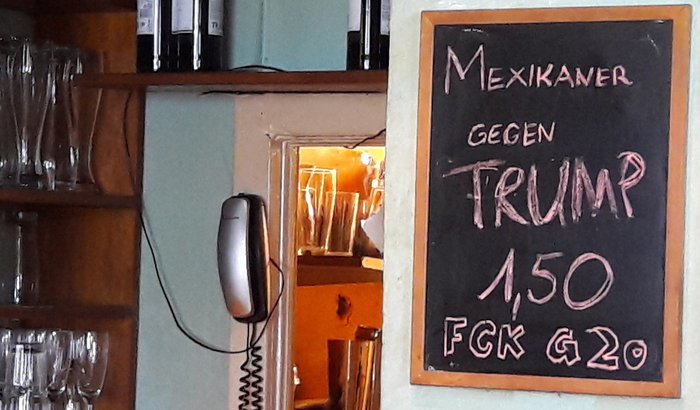 MEXIKANER
GEGEN
TRUMP
1,50
FCK G20